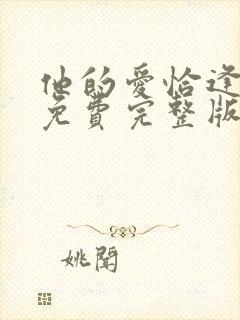 他的爱恰逢
免費完整版
姚聞